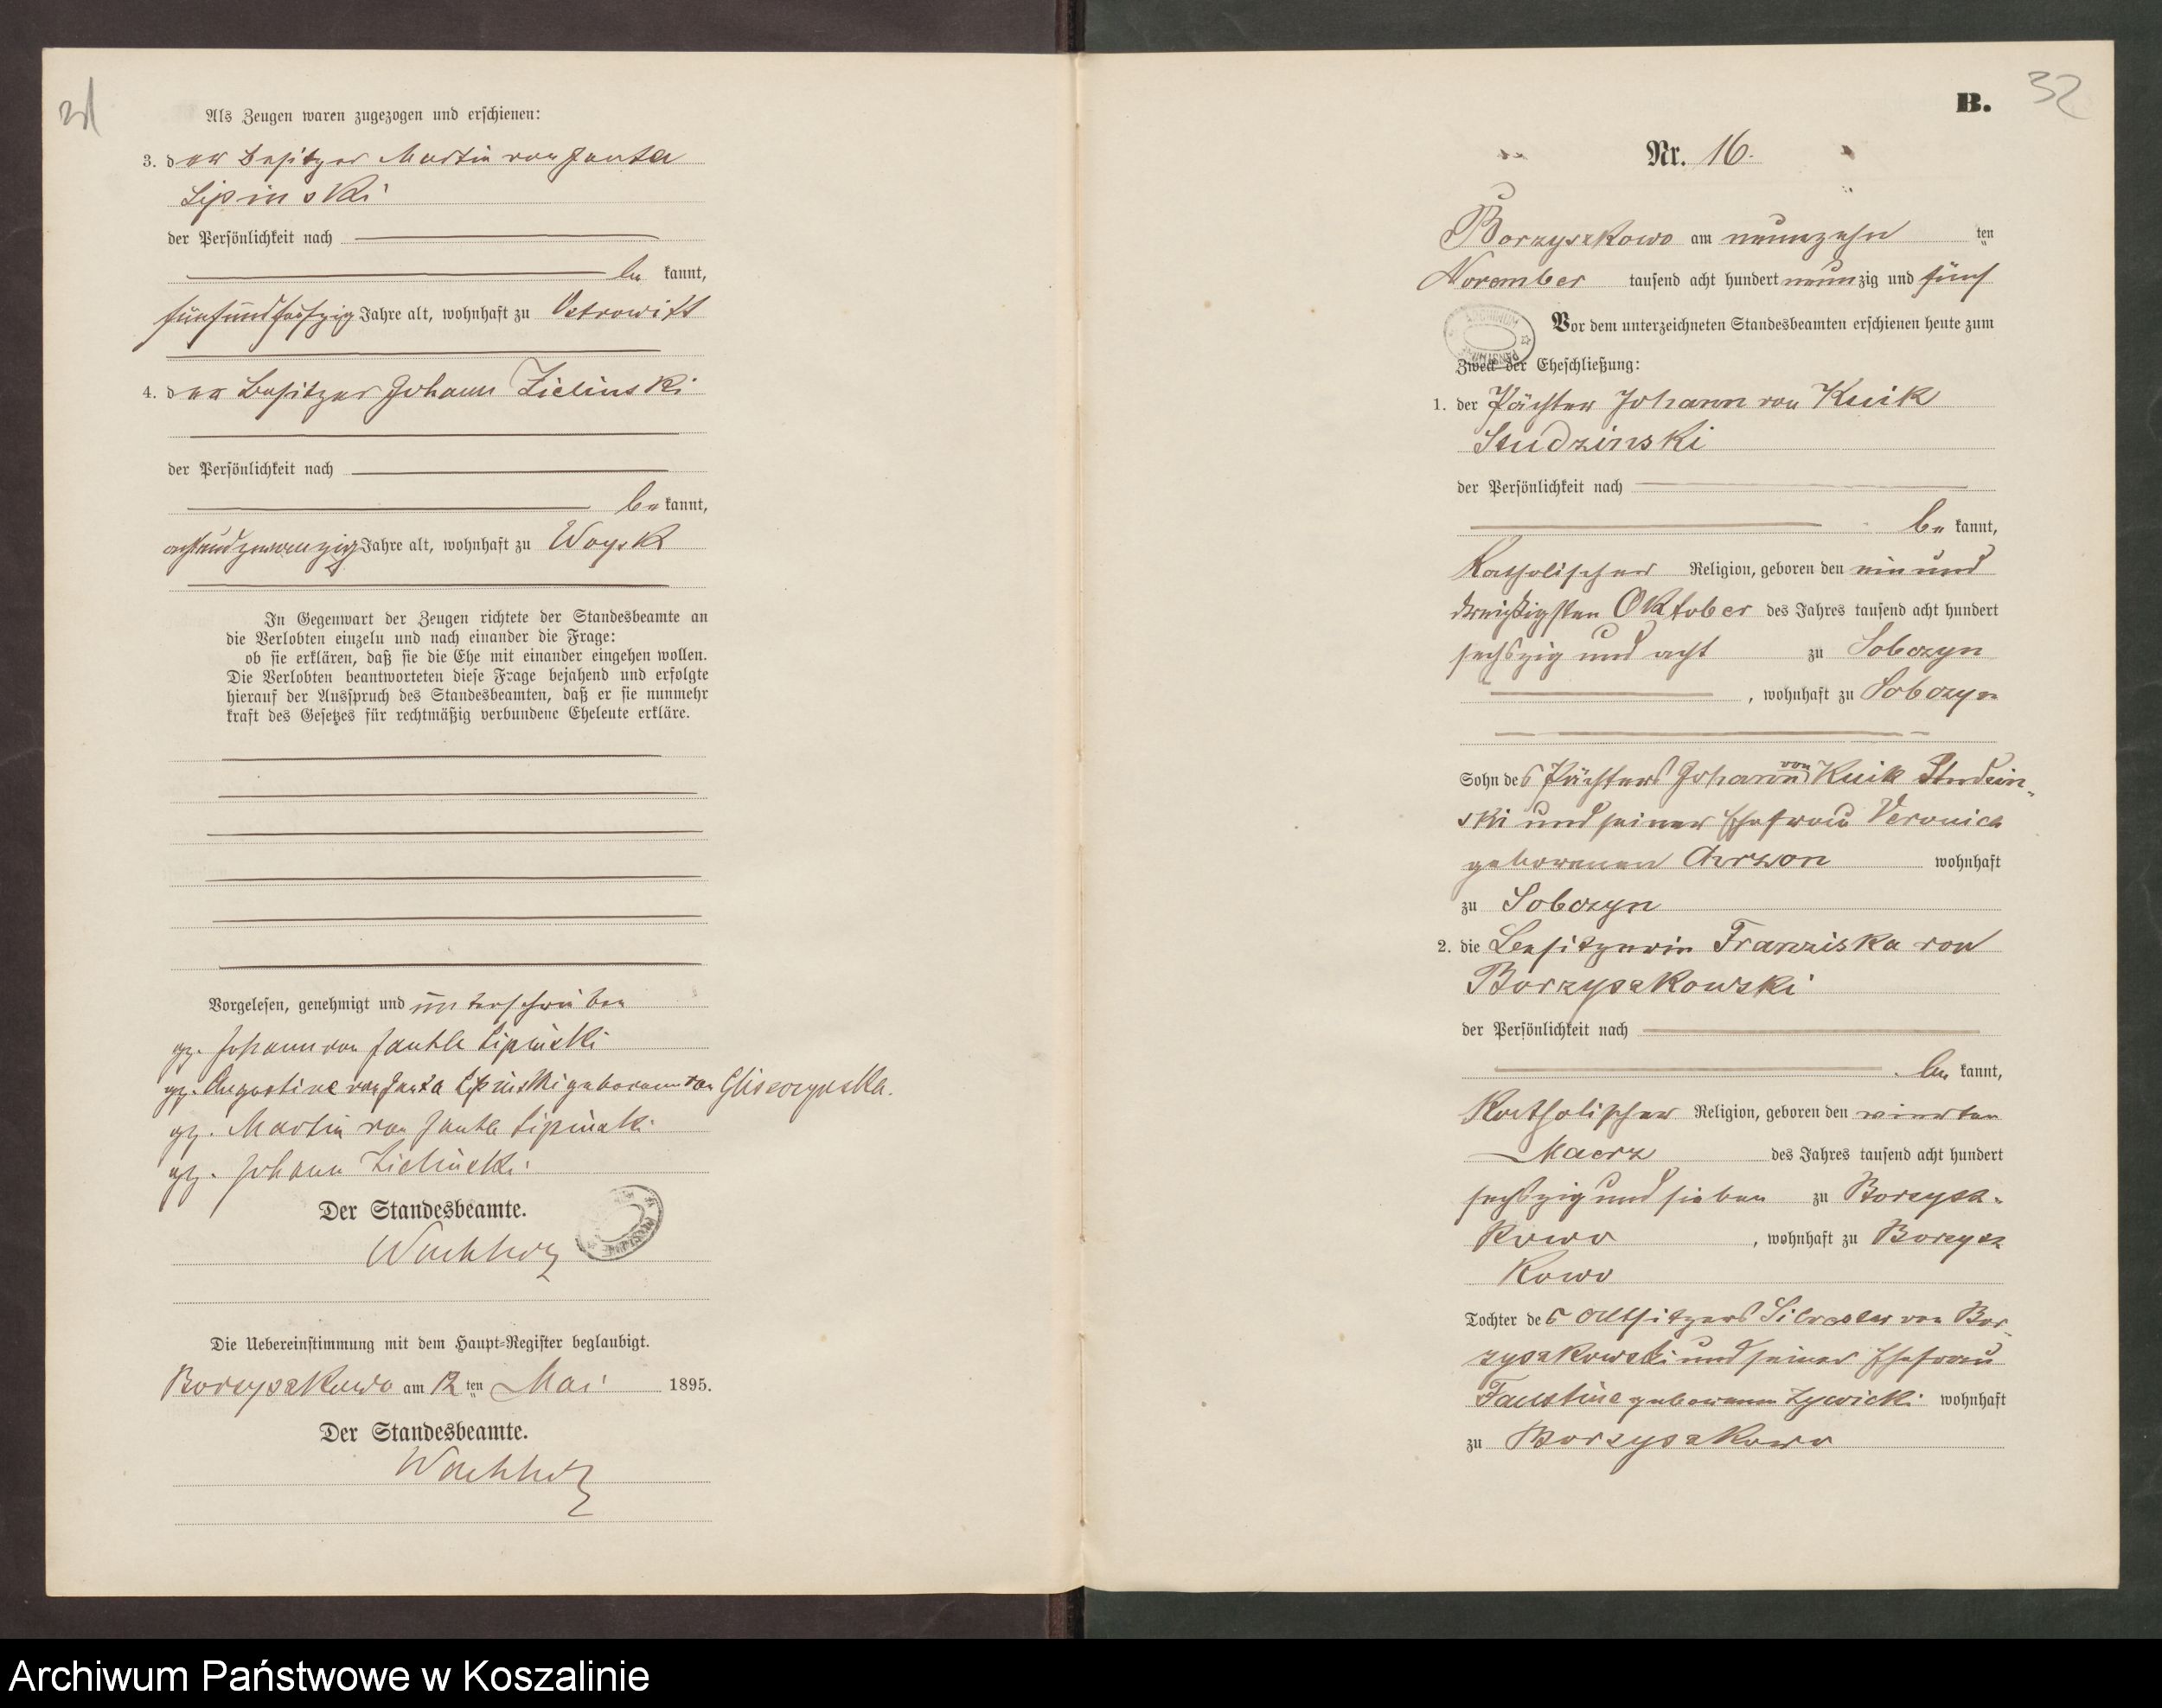 31
Als Zeugen waren zugezogen und erschienen:
3. der Besitzer Martin von Janta
Lipinski
der Persönlichkeit nach
be kannt,
fünfundfünfzig Jahre alt, wohnhaft zu Ostrowitt
4. der Besitzer Johann Zielinski
der Persönlichkeit nach
be kannt,
achtundzwanzig Jahre alt, wohnhaft zu Woysk
In Gegenwart der Zeugen richtete der Standesbeamte an
die Verlobten einzeln und nach einander die Frage:
ob sie erklären, daß sie die Ehe mit einander eingehen wollen.
Die Verlobten beantworteten diese Frage bejahend und erfolgte
hierauf der Ausspruch des Standesbeamten, daß er sie nunmehr
kraft des Gesetzes für rechtmäßig verbundene Eheleute erkläre.
Vorgelesen, genehmigt und unterschrieben
gz. Johann von Janta Lipinski
gz. Augustine von Janta Lipinski geborene von
gz. Martin von Janta Lipinski
gz. Johann Zielinski
Der Standesbeamte.
Wachholz
Die Uebereinstimmung mit dem Haupt-Register beglaubigt.
Borzyszkowo am 12 ten Mai 1895.
Der Standesbeamte.
Wachholz
B. 32
Nr. 16.
Borzyszkowo am neunzehn ten
November tausend acht hundert neunzig und fünf
Vor dem unterzeichneten Standesbeamten erschienen heute zum
Zweck der Eheschließung:
1. der Pächter Johann von Kuik
Studzinski
der Persönlichkeit nach
be kannt,
Katholischer Religion, geboren den ein und
dreißigsten Oktober des Jahres tausend acht hundert
sechszig und acht zu Sobczyn
, wohnhaft zu Sobczyn
Sohn des Pächters Johann von Kuik Studzin-
ski und seiner Ehefrau Veronica
geborenen wohnhaft
zu Sobczyn
2. die Besitzerin Franziska von
Borzyszkowski
der Persönlichkeit nach
be kannt,
Katholischer Religion, geboren den vierten
Maerz des Jahres tausend acht hundert
sechszig und sieben zu Borzysz-
kowo , wohnhaft zu Borzysz
kowo
Tochter des Altsitzers Silvester von Bor-
zyszkowski und seiner Ehefrau
Faustine geborenen Zywicki wohnhaft
zu Borzyszkowo
Archiwum Państwowe w Koszalinie